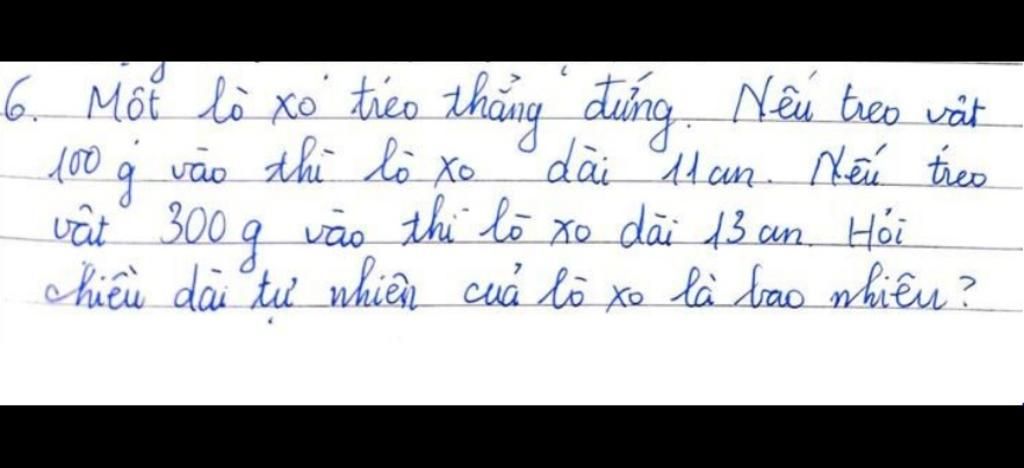 6. Một lò xo treo thẳng đứng. Nếu treo vật
100 g vào thì lò xo dài 11 cm. Nếu treo
vật 300 g vào thì lò xo dài 13 cm. Hỏi
chiều dài tự nhiên của lò xo là bao nhiêu?